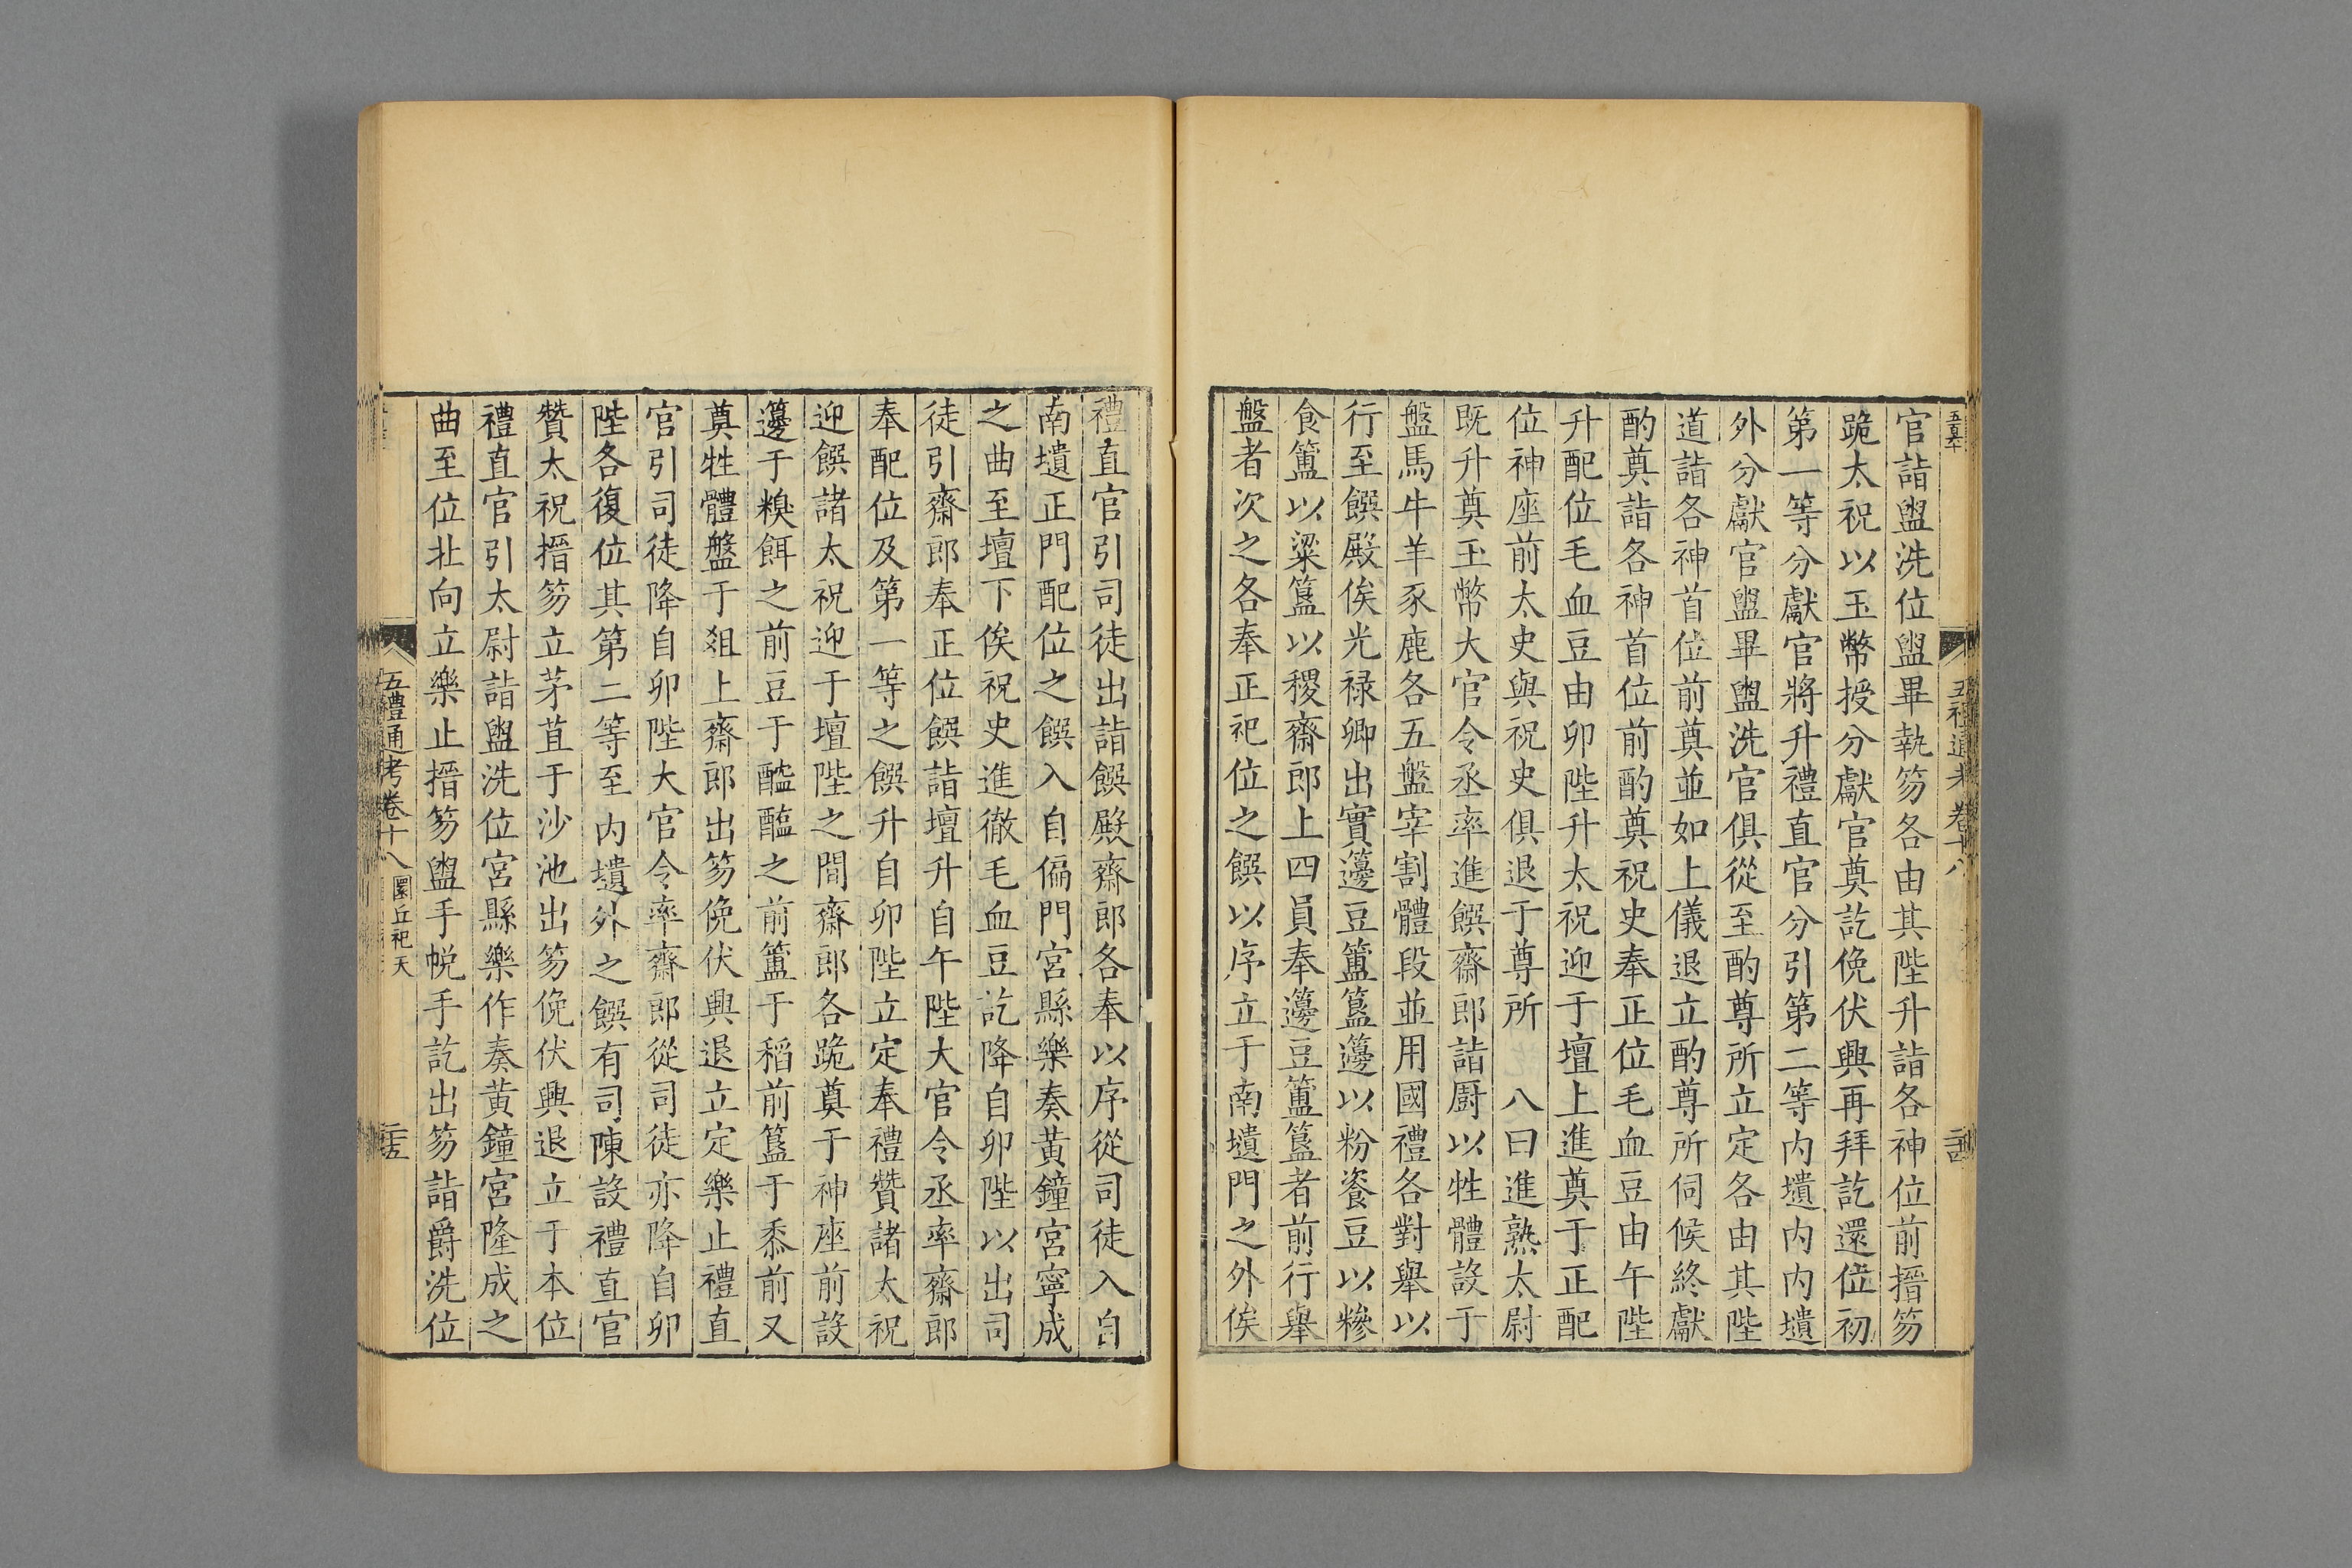 官詣盥洗位盥畢執笏各由其陛升詣各神位前搢笏
跪太祝以玉幣授分獻官奠訖俛伏興再拜訖還位初
第一等分獻官將升禮直官分引第二等內壝內內壝
外分獻官盥畢盥洗官俱從至酌尊所立定各由其陛
道詣各神首位前奠並如上儀退立酌尊所伺候終獻
酌奠詣各神首位前酌奠祝史奉正位毛血豆由午陛
升配位毛血豆由卯陛升太祝迎于壇上進奠于正配
位神座前太史與祝史俱退于尊所　八曰進熟太尉
既升奠玉幣大官令丞率進饌齋郎詣廚以牲體設于
盤馬牛羊豕鹿各五盤宰割體段並用國禮各對舉以
行至饌殿俟光禄卿出實籩豆簠簋籩以粉餈豆以糝
食簠以粱簋以稷齋郎上四員奉籩豆簠簋者前行舉
盤者次之各奉正祀位之饌以序立于南壝門之外俟
禮直官引司徒出詣饌殿齋郎各奉以序從司徒入自
南壝正門配位之饌入自偏門宮縣樂奏黃鐘宮寧成
之曲至壇下俟祝史進徹毛血豆訖降自卯陛以出司
徒引齋郎奉正位饌詣壇升自午陛大官令丞率齋郎
奉配位及第一等之饌升自卯陛立定奉禮贊諸太祝
迎饌諸太祝迎于壇陛之間齋郎各跪奠于神座前設
籩于糗餌之前豆于醯醢之前簠于稻前簋于黍前又
奠牲體盤于俎上齋郎出笏俛伏興退立定樂止禮直
官引司徒降自卯陛大官令率齋郎從司徒亦降自卯
陛各復位其第二等至內壝外之饌有司陳設禮直官
贊太祝搢笏立茅苴于沙池出笏俛伏興退立于本位
禮直官引太尉詣盥洗位宮縣樂作奏黃鐘宮隆成之
曲至位北向立樂止搢笏盥手帨手訖出笏詣爵洗位
五禮通考卷十八 圜丘祀天 二十五